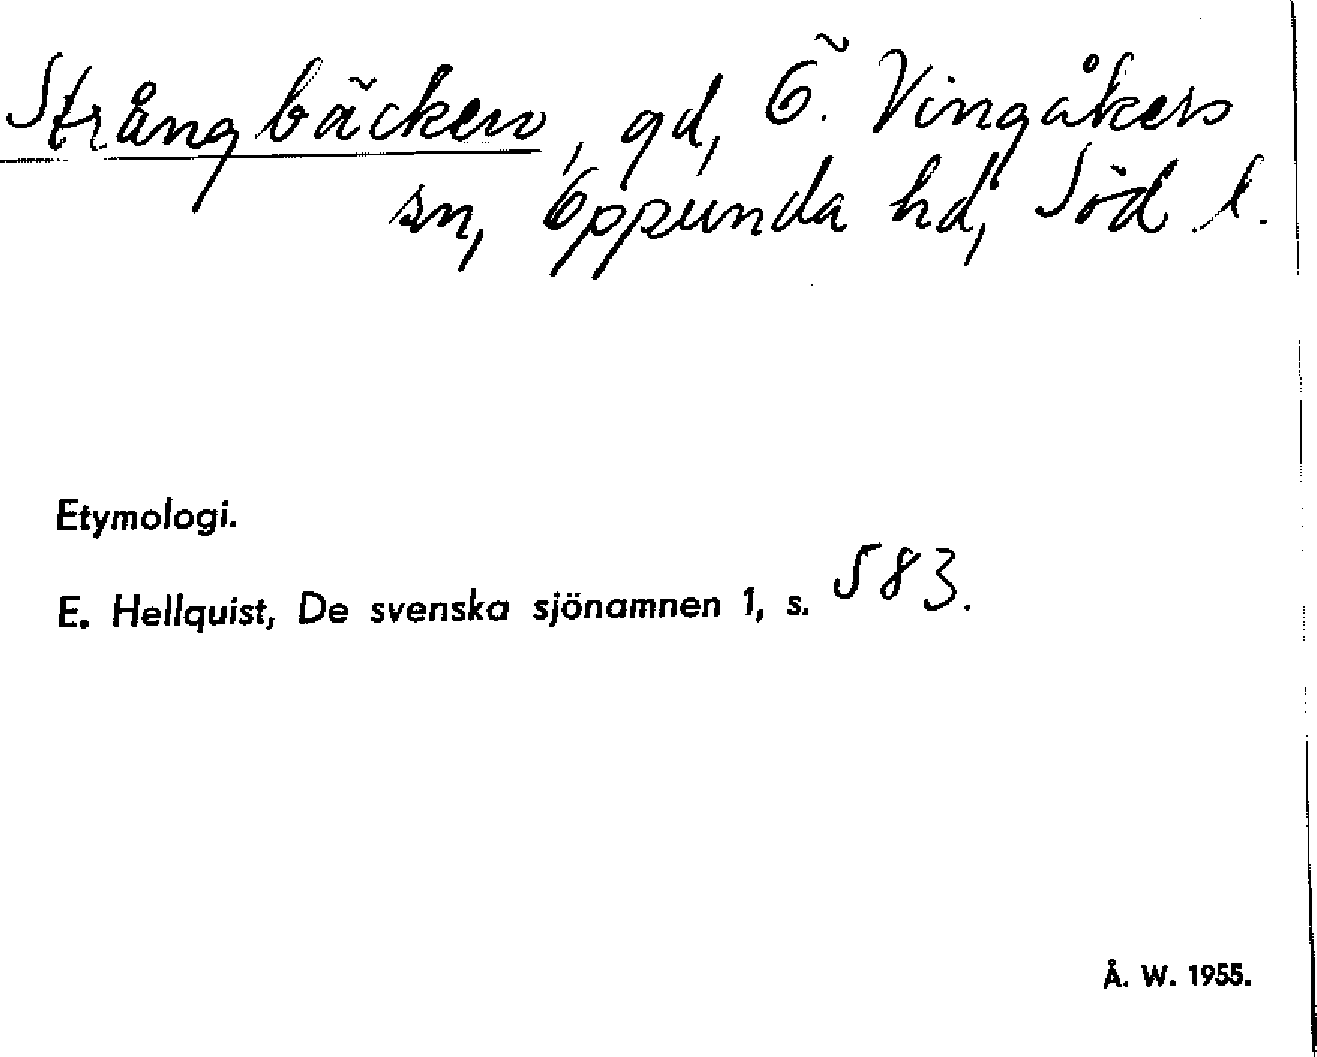 Strångbäcken, gd, Ö. Vingåkers
sn, Oppunda hd, Söd l.
Etymologi.
E. Hellquist, De svenska sjönamnen 1, s. 583.
Å. W. 1955.